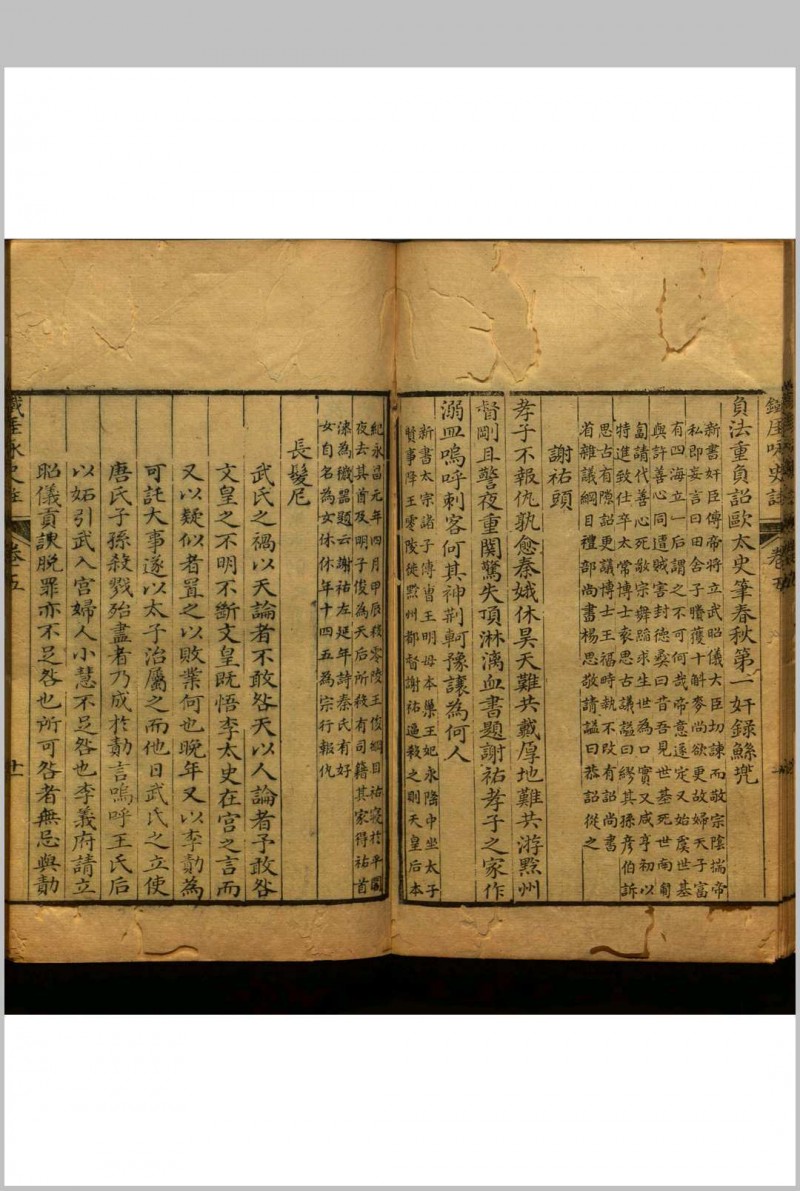 鐵厓咏史註
卷五
十
負法重負詔歐太史筆春秋第一奸錄鯀兠
新書奸臣傳帝將立武昭儀大臣切諫而敬宗陰揣帝
私即妄言曰田舍子賸獲十斛麥尚欲更故婦天子富
有四海立一后謂之不可何哉帝意遂定又始虞世基
與許善心同遭賊害封德彛曰昔吾見世基死世南匍
匐請代善心死敬宗舞蹈求生世為口實又咸亨初以
特進致仕卒太常博士袁思古議謚曰繆其孫彥伯訴
思古有隙詔更議博士王福畤執不改有詔尚書
省雜議綱目禮部尚書楊思敬請謚曰恭詔從之
謝祐頭
孝子不報仇孰愈秦娥休昊天難共戴厚地難共游黔州
督剛且警夜重關驚失頂淋漓血書題謝祐孝子之家作
溺皿嗚呼刺客何其神荆軻豫讓為何人
新書太宗諸子傳曺王明母本巢王妃永隆中坐太子
賢事降王零陵徙黔州都督謝祐逼殺之則天皇后本
紀永昌元年四月甲辰殺零陵王俊綱目祐寢於平閣
夜去其首及明子俊為天后所殺有司籍其家得祐首
漆為穢噐題云謝祐左延年詩秦氏有好
女自名為女休休年十四五為宗行報仇
長髮尼
武氏之禍以天論者不敢咎天以人論者予敢咎
文皇之不明不斷文皇既悟李太史在宮之言而
又以疑似者置之以敗業何也晚年又以李勣為
可託大事遂以太子治屬之而他日武氏之立使
唐氏子孫殺戮殆盡者乃成於勣言嗚呼王氏后
以妬引武入宮婦人小慧不足咎也李義府請立
昭儀貢諛脫罪亦不足咎也所可咎者無忌與勣
鐵厓咏史註
卷五
十一